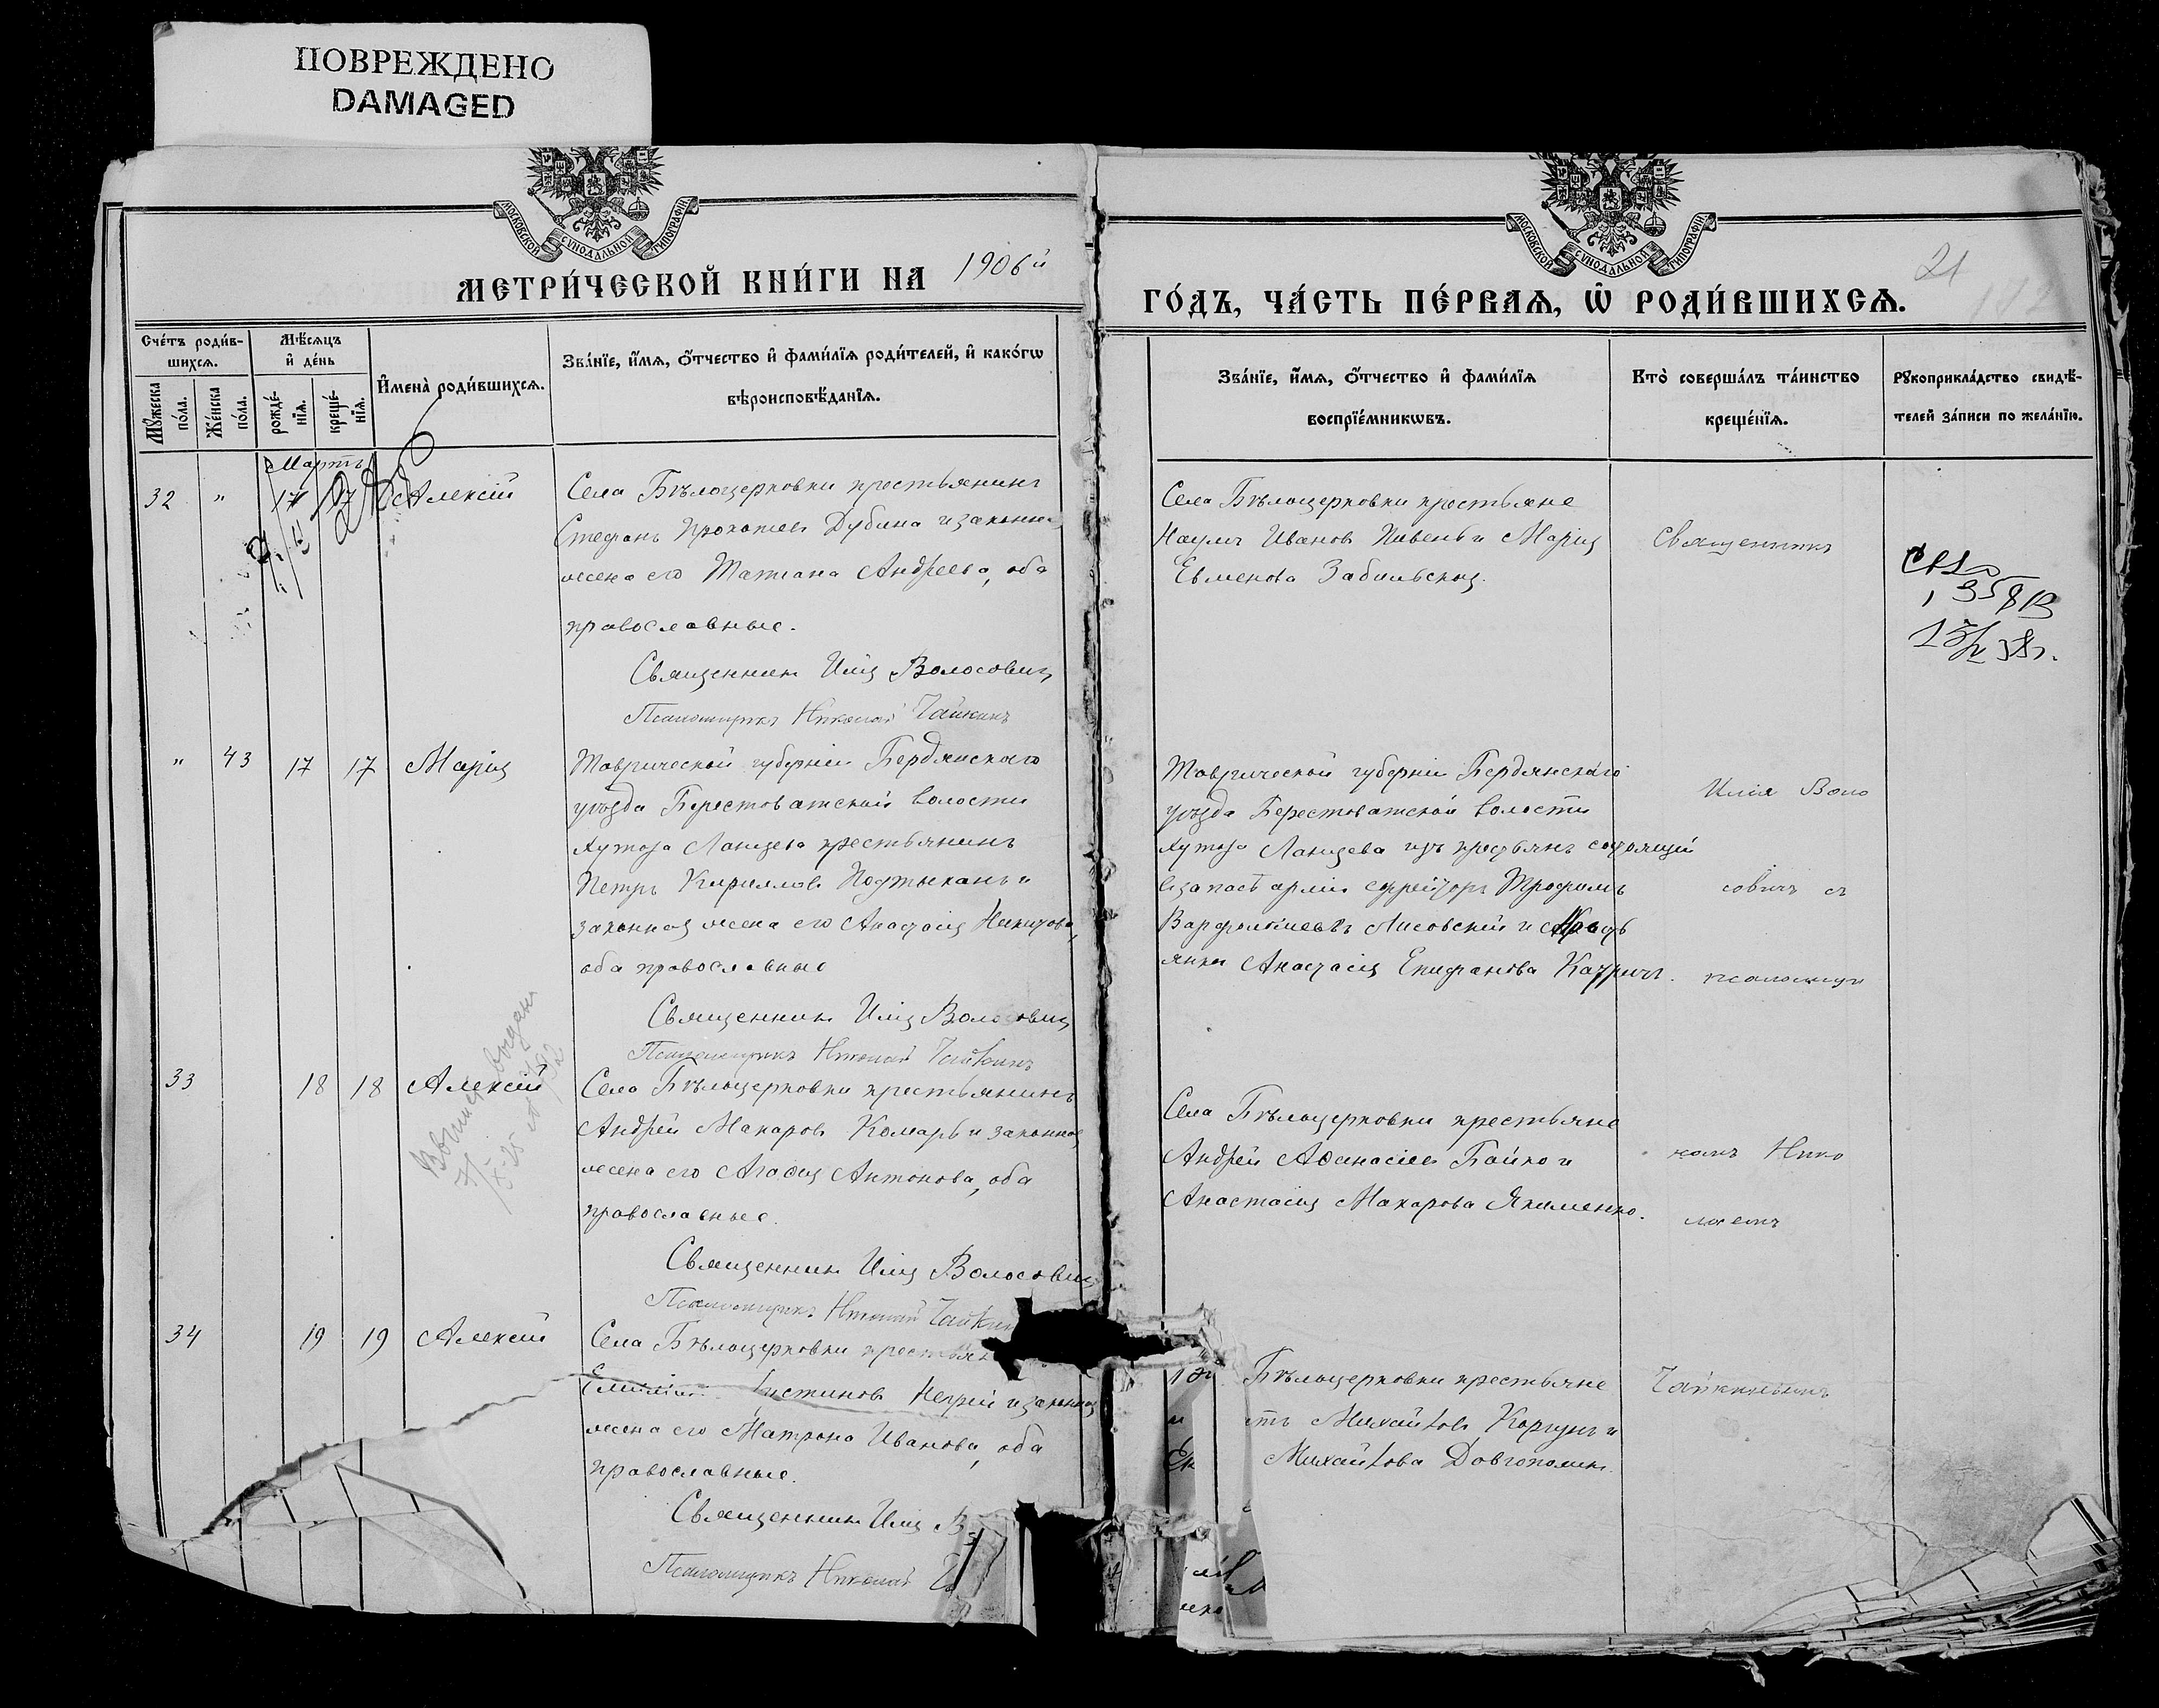 ПОВРЕЖДЕНО
DAMAGED
МОСКОВСКОЙ СѴНОДАЛЬНОЙ ТИПОГРАФІИ
МОСКОВСКОЙ СѴНОДАЛЬНОЙ ТИПОГРАФІИ
МЕТРИ́ЧЕСКОЙ КНИ́ГИ НА 1906й
ГО́ДЪ, ЧА́СТЬ ПЕ́РВАЯ, Ѡ҆ РОДИ́ВШИХСѦ.
21
Сче́тъ роди́в-
шихсѧ.
Мꙋ́жеска по́ла.
Же́нска по́ла.
Мѣ́сѧцъ
и҆ де́нь
рожде́-нїѧ.
креще́-нїѧ.
И҆мена̀ роди́вшихсѧ.
Зва́нїе, и҆́мѧ, ѻ҆́тчество и҆ фами́лїѧ роди́телей, и҆ како́гѡ
вѣроисповѣ́данїѧ.
Зва́нїе, и҆́мѧ, ѻ҆́тчество и҆ фами́лїѧ
воспрїе́мникѡвъ.
Кто̀ соверша́лъ та́инство
креще́нїѧ.
Рꙋкоприкла́дство свидѣ́-
телей за́писи по жела́нїю.
Мартъ
32 " 17 17 Алексій
Села Бѣлоцерковки крестьянинъ
Стефанъ Прокопіевъ Дубина и законная
жена его Татіана Андреева, оба
православные.
Священникъ Илія Волосовичъ
Псаломщикъ Николай Чайкинъ
Села Бѣлоцерковки крестьяне
Наумъ Ивановъ Пивень и Марія
Евменова Забильская.
Священникъ
358
" 43 17 17 Марія
Таврической губерніи Бердянскаго
уѣзда Берестоватской волости
хутора Ланцева крестьянинъ
Петръ Кирилловъ Подтыканъ и
законная жена его Анастасія Никитова,
оба православные
Священникъ Илія Волосовичъ
Псаломщикъ Николай Чайкинъ
Таврической губерніи Бердянскаго
уѣзда Берестоватской волости
хутора Ланцева изъ крестьянъ состоящій
въ запасѣ арміи ефрейторъ Трофимъ
Варфоломіевъ Лисовскій и крестъ
янка Анастасія Епифанова
Илія Воло
совичъ съ
псаломщи
33 18 18 Алексій
Выпись выдана
Села Бѣлоцерковки крестьянинъ
Андрей Макаровъ Комарь и законная
жена его Агафія Антонова, оба
православные.
Священникъ Илія Волосовичъ
Псаломщикъ Николай Чайкин
Села Бѣлоцерковки крестьяне
Андрей Афанасіевъ Бойко и
Анастасія Макарова Якименко.
комъ Нико
лаемъ
34 19 19 Алексій
Села Бѣлоцерковки крестьян
Емиліанъ Іустиновъ Негрей и законная
жена его Матрона Иванова, оба
православные.
Священникъ Илія В
Псаломщикъ Николай Ч
Бѣлоцерковки крестьяне
Михайловъ Коргунъ и
Ек Михайлова Довгополик
Чайкинымъ